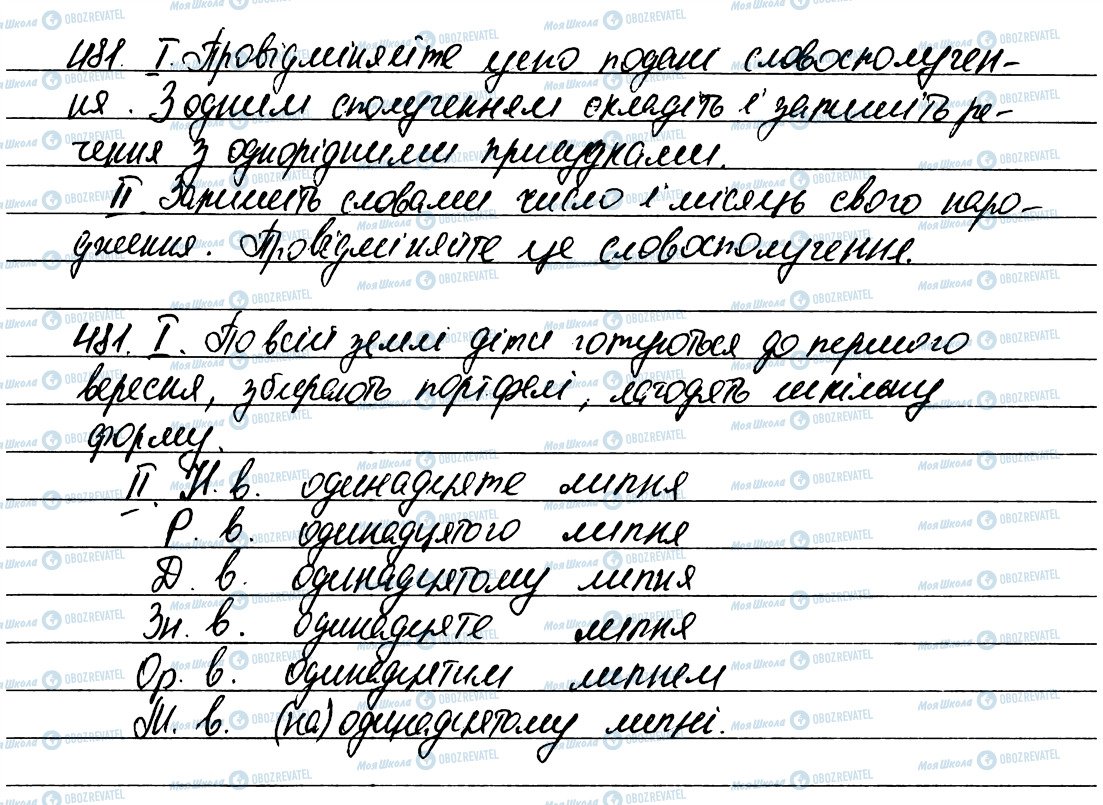 481. I. Провідміняйте усно подані словосполучен-
ня. З одним сполученням складіть і запишіть ре-
чення з однорідними присудками.
II. Запишіть словами число і місяць свого наро-
дження. Провідміняйте це словосполучення.
481. I. По всій землі діти готуються до першого
вересня, збирають портфелі, лагодять шкільну
форму.
II. Н. в. одинадцяте липня
Р. в. одинадцятого липня
Д. в. одинадцятому липня
Зн. в. одинадцяте липня
Ор. в. одинадцятим липнем
М. в. (на) одинадцятому липні.